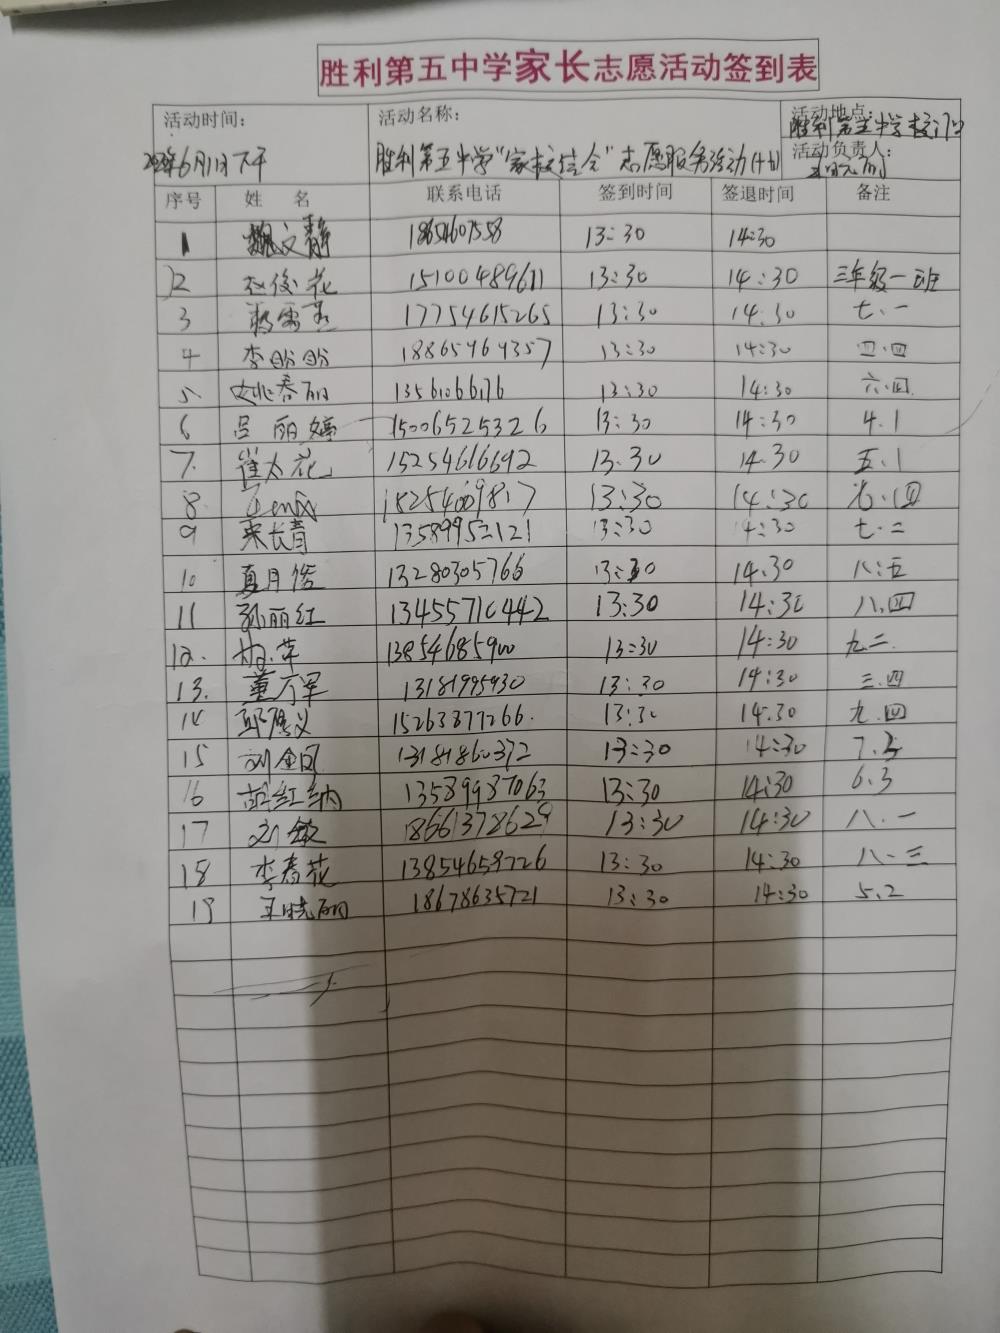 胜利第五中学家长志愿活动签到表
活动时间： 活动名称： 活动地点：胜利第五中学校门口
6月1日下午 胜利第五中学“家校结合”志愿服务活动 活动负责人：
序号 姓 名 联系电话 签到时间 签退时间 备注
1 魏文静 13:30 14:30
2 花 15100489611 13:30 14:30 三年级一班
3 17754615265 13:30 14:30 七.一
4 李盼盼 18865464357 13:30 14:30 四.四
5 姚春丽 1356106676 13:30 14:30 六.四
6 吕丽婷 15006525326 13:30 14:30 4.1
7. 崔太花 15254616692 13:30 14:30 五.1
8. 13:30 14:30 四
9 长青 13589952121 13:30 14:30 七.二
10 夏月俊 13280305766 13:30 14:30 八:五
11 孙丽红 13455710442 13:30 14:30 八.四
12. 萍 13854685900 13:30 14:30 九.二
13. 董万军 13181995930 13:30 14:30 三.四
14 邱 义 15263877266. 13:30 14.30 九.四
15 刘金凤 13181860372 13:30 14:30
16 胡红纳 13589987063 13:30 14:30 6.3
17 刘敏 18661378629 13:30 14:30 八.一
18 李春花 13854658726 13:30 14:30 八.三
19 王晓丽 18678635721 13:30 14:30 5.2